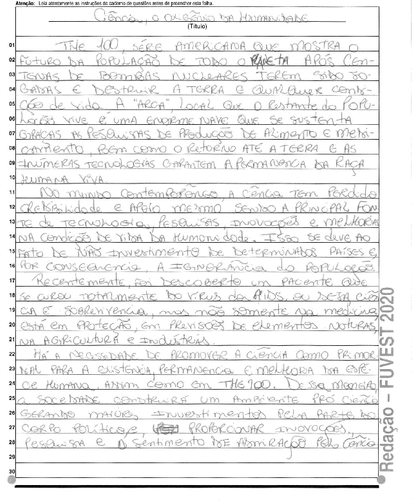 Atenção: Leia atentamente as instruções do caderno de questões antes de preencher esta folha.
Ciência, o oxigênio da Humanidade
(Título)
01 The 100, série americana que mostra o
02 futuro da população de todo o planeta após cen-
03 tenas de bombas nucleares terem sido jo-
04 gadas e destruir a Terra e qualquer condi-
05 ção de vida. A "Arca", local que o restante do popu-
06 vive é uma enorme nave que se sustenta
07 graças as pesquisas de produção de alimento e medi-
08 camento, bem como o retorno até a Terra e as
09 inúmeras tecnologias garantem a permanência da raça
10 humana viva.
11 No mundo contemporâneo, a ciência tem perdido
12 credibilidade e apoio mesmo sendo a principal fon-
13 te de tecnologia, pesquisas, inovações e melhoria
14 na condição de vida da humanidade. Isso se dive ao
15 fato de não investimento de determinados países e,
16 por consequencia, a da população.
17 Recentemente, foi descoberto um paciente que
18 se curou totalmente do virus da Aids, ou seja ciên-
19 cia é sobrevivencia, mas não somente na medicina
20 está em proteção, em previsões de elementos naturais,
21 na agricultura e indústrias.
22 Há a necessidade de promover a ciência como primor-
23 dial para a existência, permanencia e melhoria da espé-
24 cie humana, assim como em The 100. Dessa maneira
25 a sociedade construirá um ambiente pró ciência
26 gerando maiores investimentos pela parte do
27 corpo político, e proporcionar inovações,
28 pesquisa e o sentimento de admiração pela ciência
29
30
Redação – FUVEST 2020